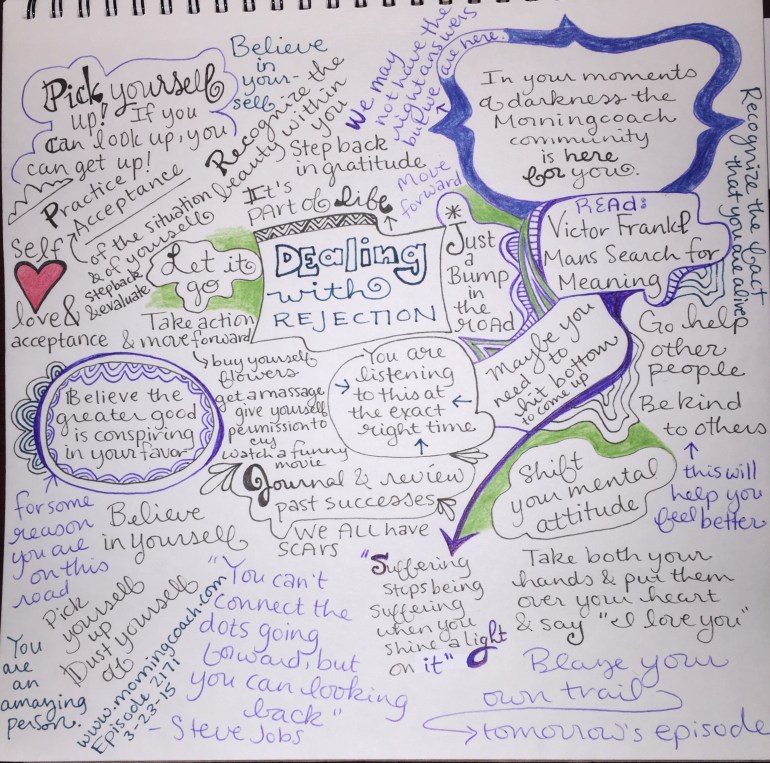 Pick yourself
up! If you
can look up, you
can get up!
Believe
in
your-
self
Recognize the
beauty within
you
We may
not have the
right answers
but we are here.
In your moments
of darkness the
Morningcoach
community
is here
for you.
Recognize the fact
that you are alive
Practice
Acceptance
of the situation
& of yourself
step back
& evaluate
Self
love &
acceptance
Step back
in gratitude
It's
part of life
move
forward
Let it
go
Dealing
with
REJECTION
* Just
a
Bump
in
the
road
READ:
Victor Frankl
Mans Search for
Meaning
Take action
& move forward
buy yourself
flowers
get a massage
give yourself
permission to
cry
watch a funny
movie
You are
listening
to this at
the exact
right time
Maybe you
need to
hit bottom
to come up
Go help
other
people
Be kind
to others
this will
help you
feel better
Believe the
greater good
is conspiring
in your favor
for some
reason
you are
on this
road
Believe
in yourself
Journal & review
past successes
We All have
scars
Shift
your mental
attitude
Pick
yourself
up
Dust yourself
off
You
are
an
amazing
person.
www.morningcoach.com
Episode 2171
3-23-15
"You can't
connect the
dots going
forward, but
you can looking
back"
- Steve Jobs
"Suffering
stops being
suffering
when you
shine a light
on it"
Take both your
hands & put them
over your heart
& say "I love you"
Blaze your
own trail
tomorrow's episode